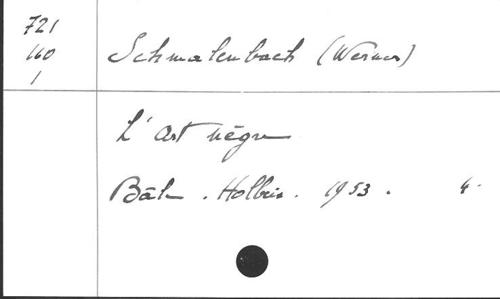 721
160
1
Schmalenbach (Werner)
L'art nègre
Bâle. Holbein. 1953. 4°